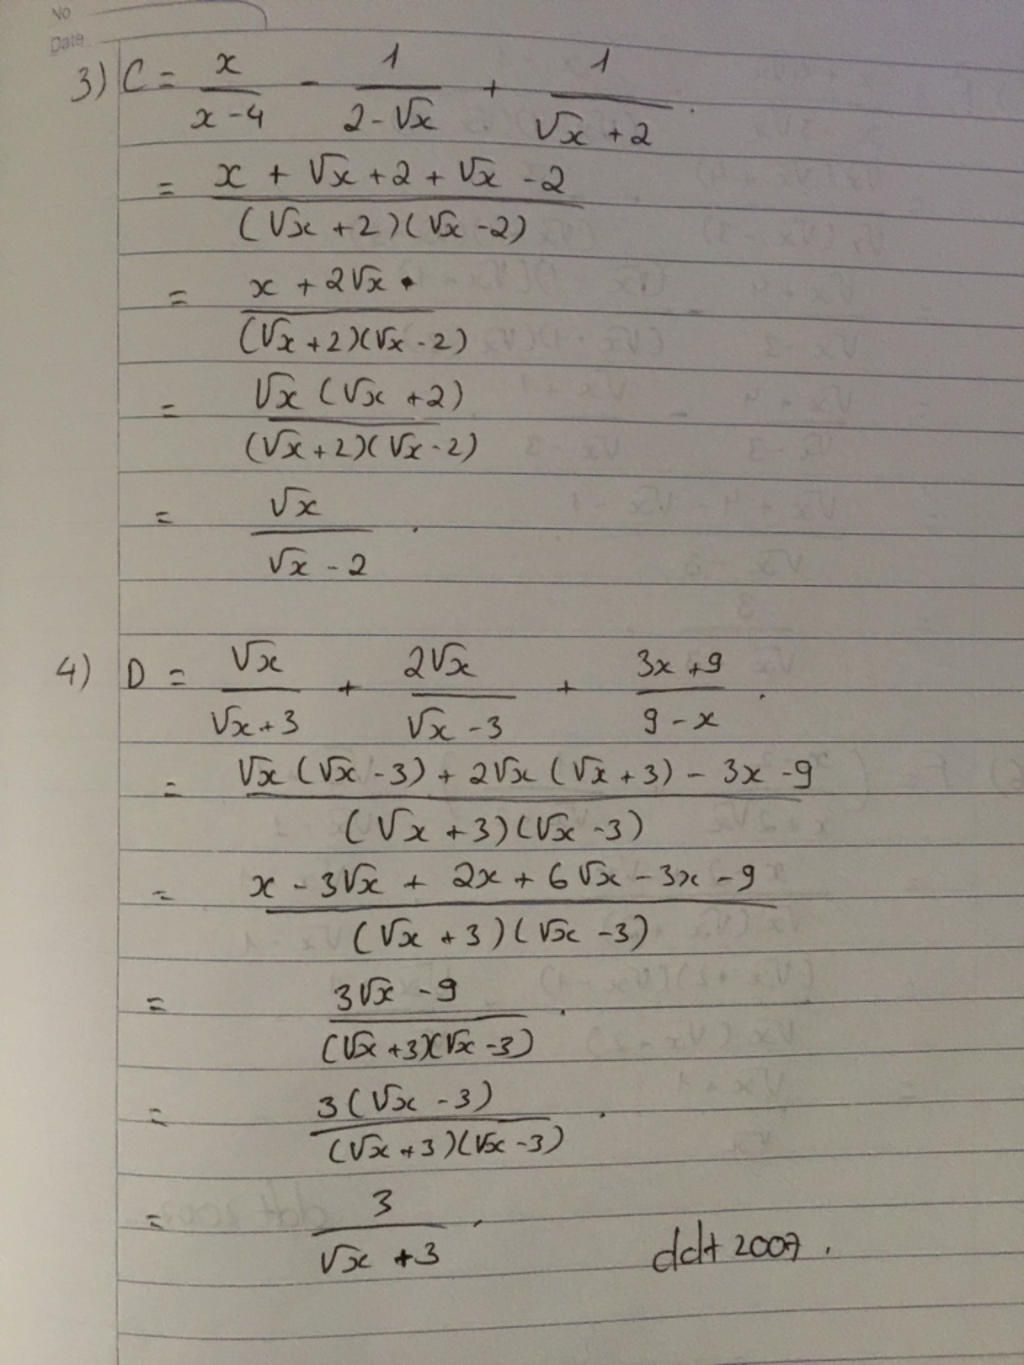 No
Date
3) C = x/(x-4) - 1/(2-√x) + 1/(√x+2).
= (x + √x + 2 + √x - 2)/((√x+2)(√x-2))
= (x + 2√x)/((√x+2)(√x-2))
= (√x(√x+2))/((√x+2)(√x-2))
= √x/(√x-2).
4) D = √x/(√x+3) + 2√x/(√x-3) + (3x+9)/(9-x).
= (√x(√x-3) + 2√x(√x+3) - 3x - 9)/((√x+3)(√x-3))
= (x - 3√x + 2x + 6√x - 3x - 9)/((√x+3)(√x-3))
= (3√x - 9)/((√x+3)(√x-3)).
= (3(√x-3))/((√x+3)(√x-3)).
= 3/(√x+3).
ddt 2007.